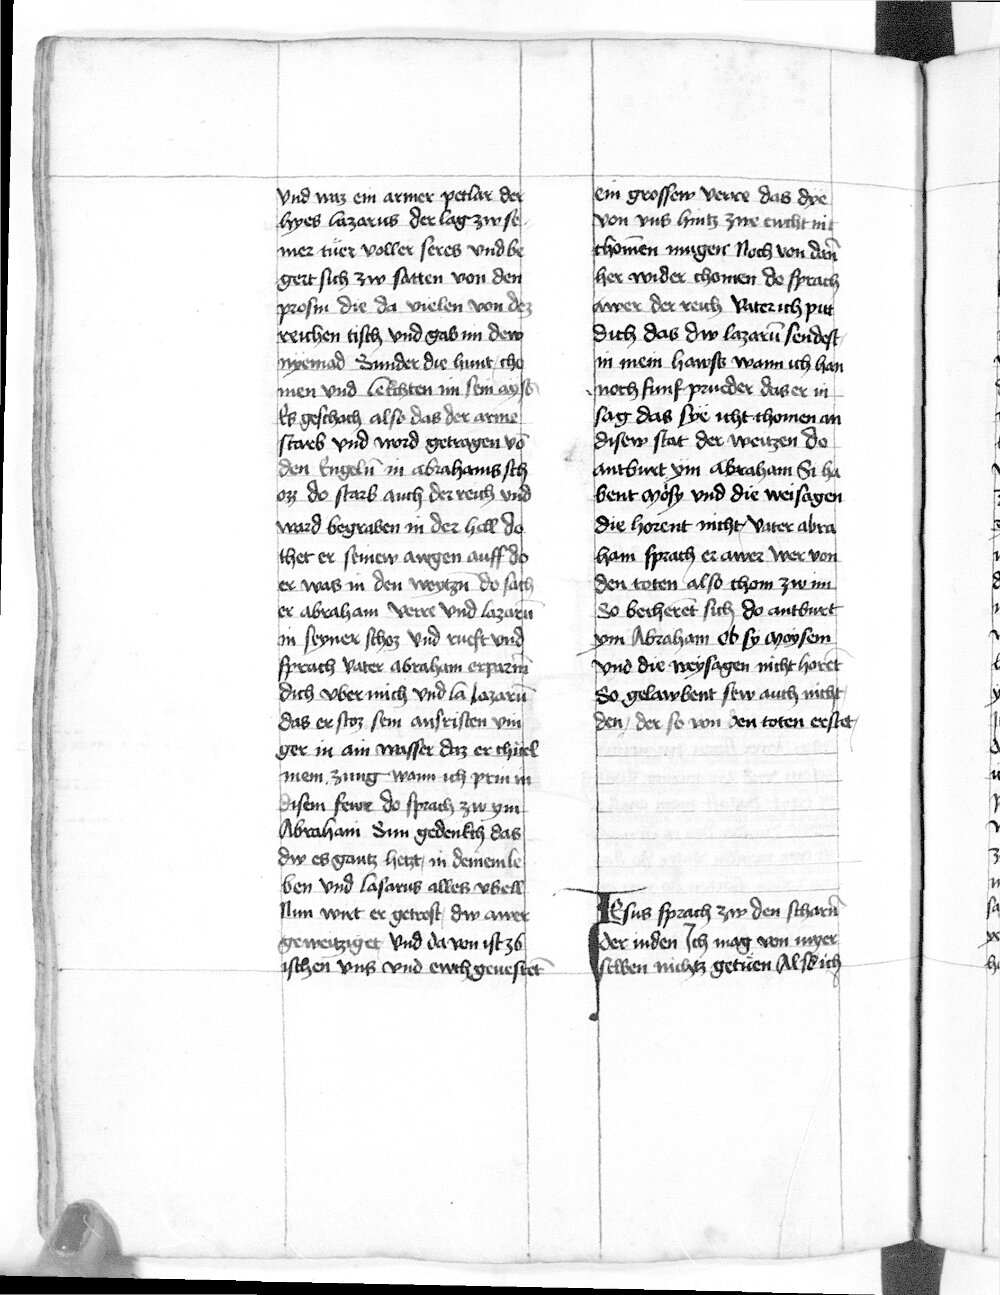 vnd waz ein armer petlar der
hyes lazarus der lag zw se
iner tüer voller seres vnd be
gert sich zw satten von den
prosin die da vielen von dez
reichen tisch vnd gab im dew
nyemad Sunder die hunt cho
men vnd lekchten im sein ays
Es geschach also das der arme
starb vnd word getragen vō
den Engeln in abrahams sch
ozz do starb auch der reich vnd
ward begraben in der hell do
thet er seinew awgen auff do
er was in den weytzn do sach
er abraham verre vnd lazarū
in seyner schoz vnd rueft vnd
sprach vater abraham erparm
dich vber mich vnd la lazarū
das er stoz sein ausristen vin
ger in ain wasser daz er chüel
mein zung wann ich prin in
disem fewr do sprach zw ym
Abraham Sun gedenkch das
dw es gantz hetzt in deinem le
ben vnd lasarus alles vbell
Nun wirt er getrost dw awer
geweitziget vnd da von ist zb
ischen vns vnd ewch geuestet
ein grossew verre das dye
von vns hintz zwe ewcht nit
chömen mugen Noch von dan
her wider chomen do sprach
awer der reich Vater ich pitt
dich das dw lazarū sendest
in mein hawss wann ich han
noch funf prueder das er in
sag das sye icht chomen an
disew stat der weitzen do
antburt ym Abraham Si ha
bent Moysy vnd die weisagen
die horent nicht vater abra
ham sprach er awer wer von
den toten also chom zw im
So becheret sich do antburt
ym Abraham Ob sy Moysem
vnd die weysagen nicht horēt
So gelawbent sew auch nicht
den der so von den toten erstet
IEsus sprach zw den scharn
der iuden Ich mag von myer
selben nichtz getüen Als ich